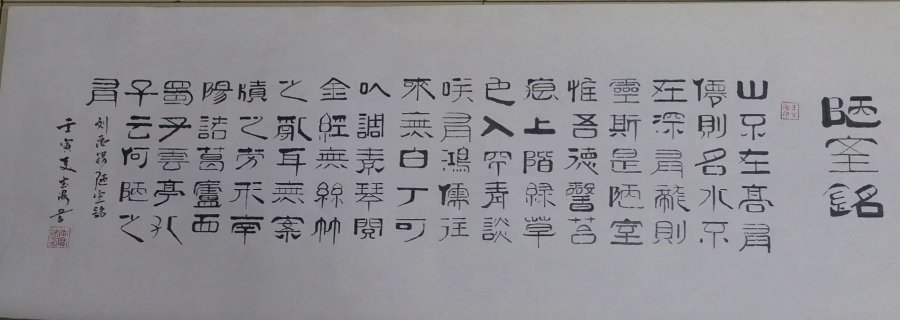 陋室銘
山不在高有
僊則名水不
在深有龍則
靈斯是陋室
惟吾德馨苔
痕上階綠草
色入帘青談
咲有鴻儒往
來無白丁可
以調素琴閱
金經無絲竹
之亂耳無案
牘之勞形南
陽諸葛廬西
蜀子雲亭孔
子云何陋之
有
劉禹錫陋室銘
壬寅夏